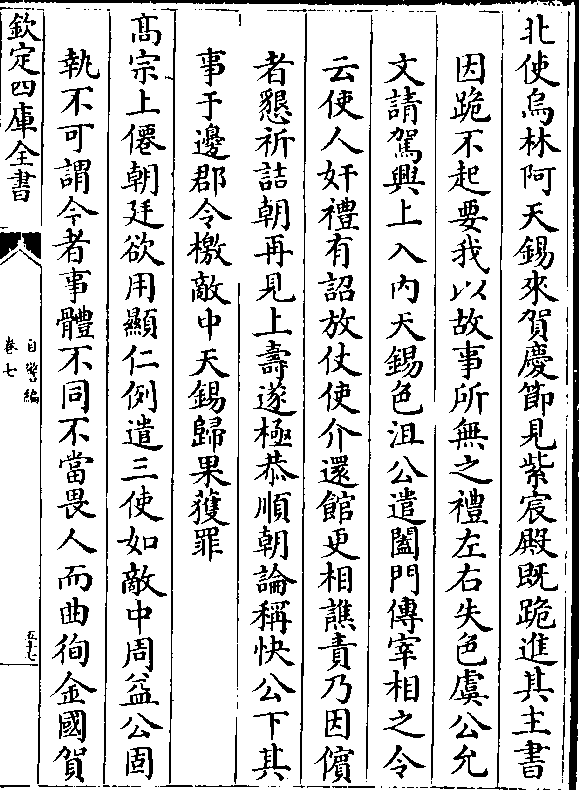 北使烏林阿天錫來賀慶節見紫宸殿既跪進其主書
因跪不起要我以故事所無之禮左右失色虞公允
文請駕興上入内天錫色沮公遣閤門傳宰相之令
云使人奸禮有詔放仗使介還館更相譙責乃因儐
者懇祈詰朝再見上壽遂極恭順朝論稱快公下其
事于邊郡令檄敵中天錫歸果獲罪
髙宗上僊朝廷欲用顯仁例遣三使如敵中周益公固
執不可謂今者事體不同不當畏人而曲徇金國賀
欽定四庫全書
自警編
卷七
五十七